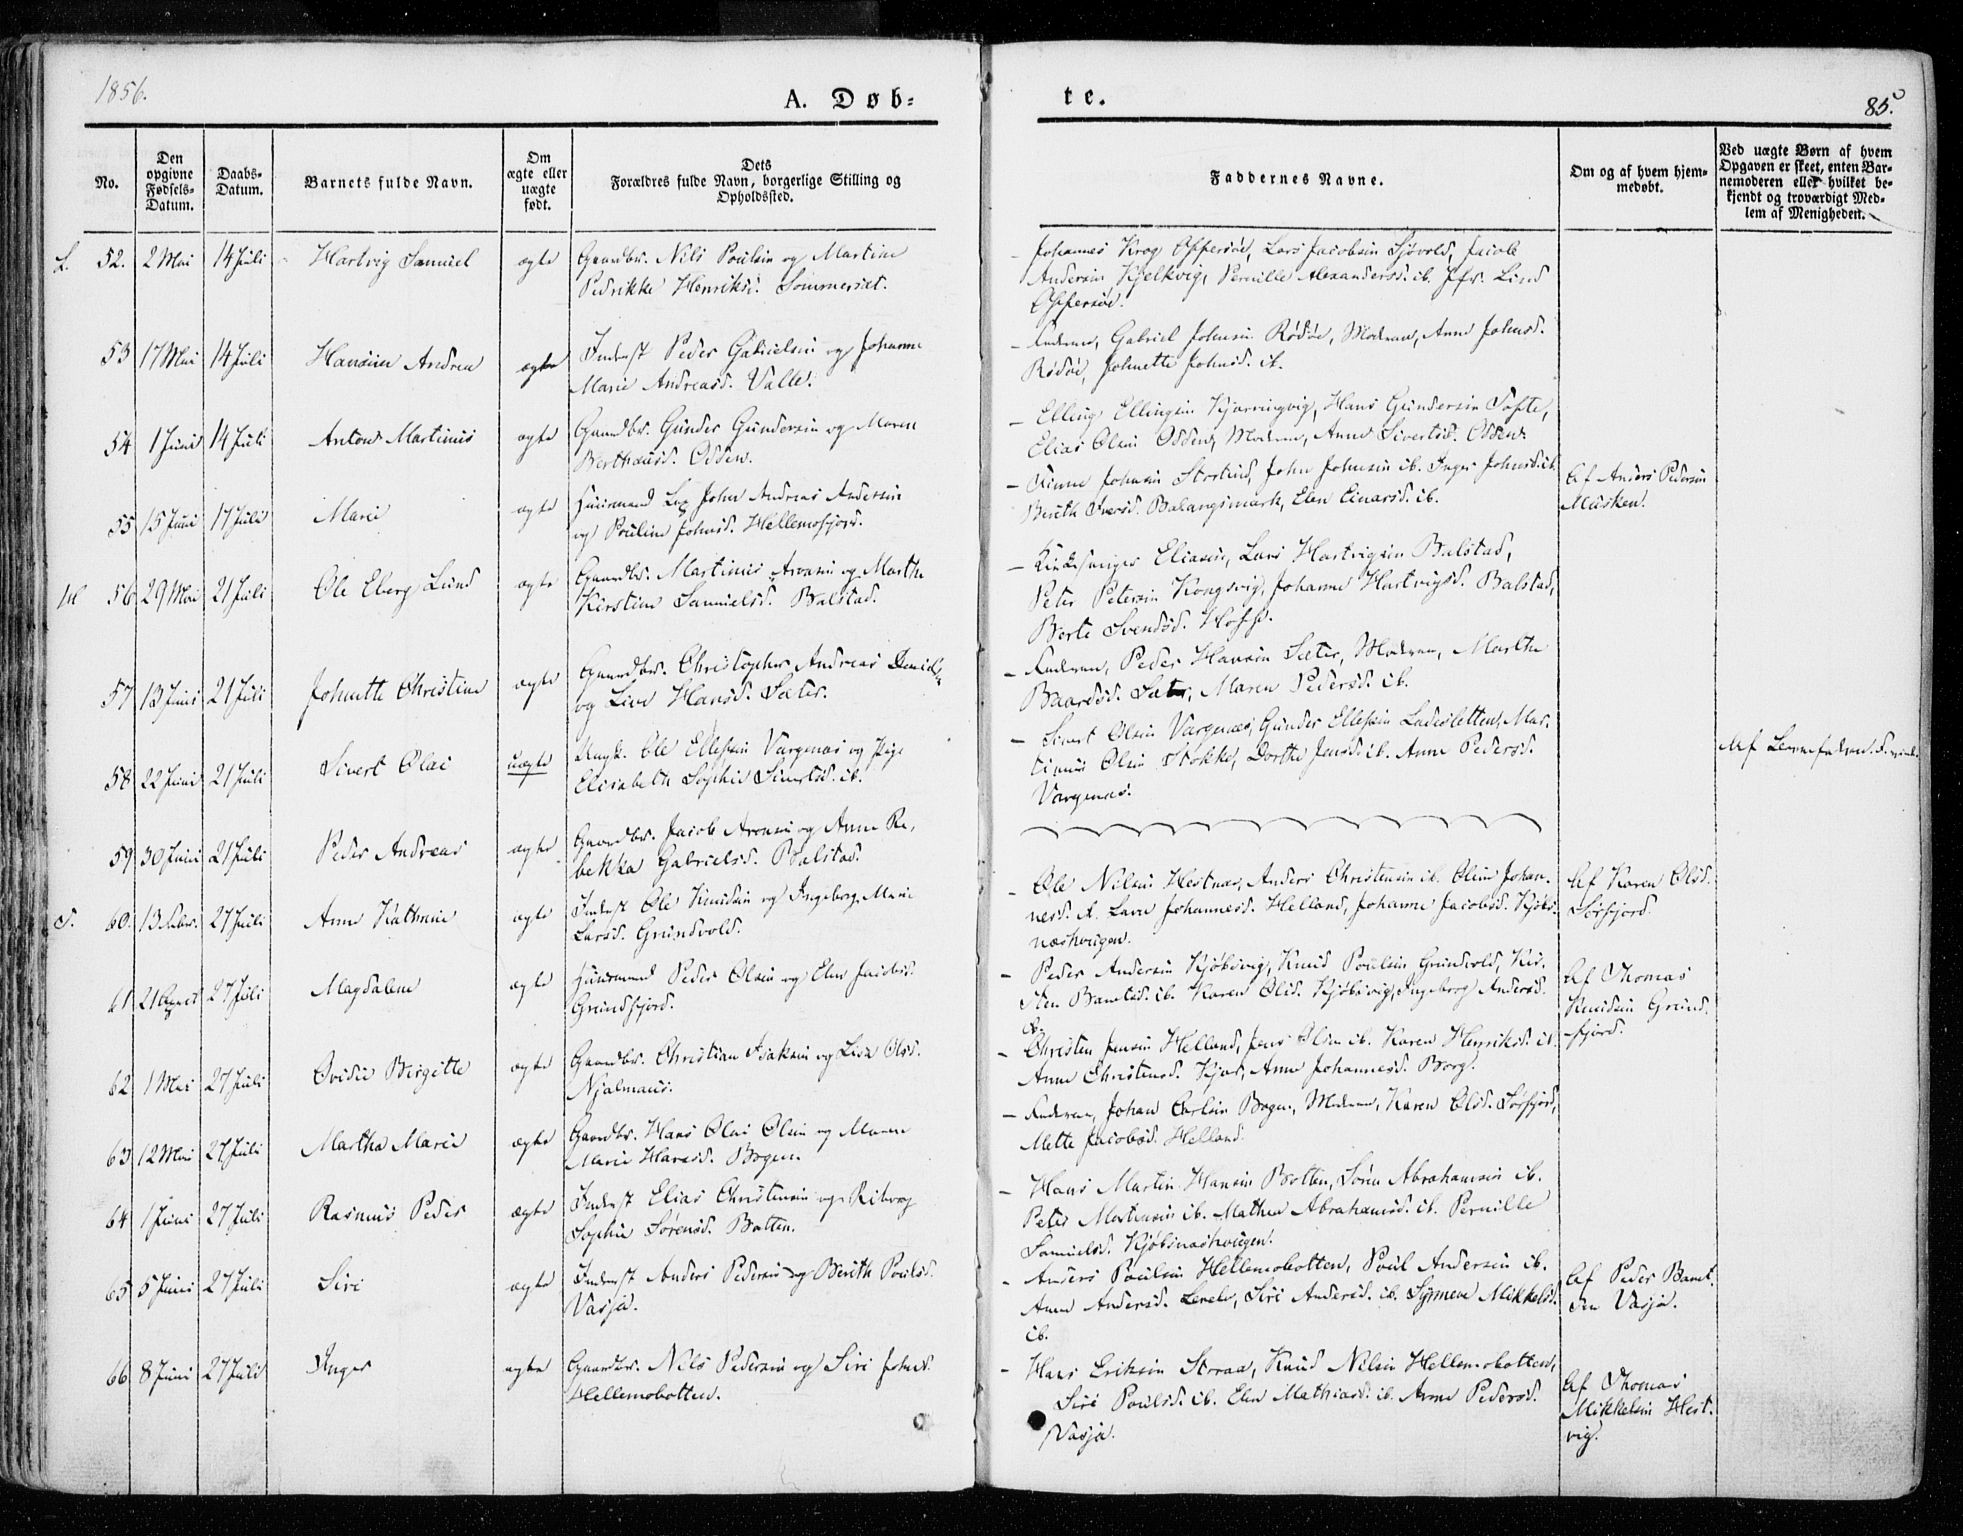 1856.
A. Døb-
te.
85.
No.
Den opgivne Fødsels-Datum.
Daabs-Datum.
Barnets fulde Navn.
Om ægte eller uægte født.
Dets Forældres fulde Navn, borgerlige Stilling og Opholdssted.
Faddernes Navne.
Om og af hvem hjem-medøbt.
Ved uægte Børn af hvem Opgaven er skeet, enten Bar-nemoderen eller hvilket be-kjendt og troværdigt Med-lem af Menigheden.
L. 52. 2 Mai 14 Juli Hartvig Samuel ægte Gaardbr. Nils Poulsen og Martine
Pedrikke Henriksd. Sommerset.
Johannes Krog Offersøe, Lars Jacobsen Sjøvold, Jacob
Andersen Kjelkvig, Pernille Alexandersd. ib. Jfr. Lind
Offersøe.
53 17 Mai 14 Juli Hansine Andrea ægte Inderst Peder Gabrielsen og Johanne
Marie Andreasd. Valle.
Faderen, Gabriel Johnsen Rødøe, Moderen, Anne Johnsd.
Rødøe, Johnette Johnsd. ib.
54 1 Juni 14 Juli Anton Martinus ægte Gaardbr. Gunder Gundersen og Maren
Bertheusd. Odden.
Elling Ellingsen Kjerringvig, Hans Gundersen Tofte,
Elias Olsen Odden, Moderen, Anne Sivertsd. Odden.
55 15 Juni 17 Juli Marie ægte Huusmand Lap John Andreas Andersen
og Pouline Johnsd. Hellemofjord.
Johnsen Storlind, John Johnsen ib. Inger Johnsd. ib.
Berith Iversd. Balangsmark, Elen Einarsd. ib.
Af Anders Pedersen
Musken.
56 29 Mai 21 Juli Ole Eberg Lund ægte Gaardbr. Martinus Aronsen og Marthe
Kirstine Samuelsd. Balstad.
Kirkesanger Eliasen, Lars Hartvigsen Balstad,
Peter Petersen Kongsvig, Johanne Hartvigsd. Balstad,
Berte Svendsd. Hoff.
57 13 Juni 21 Juli Johnette Christine ægte Gaardbr. Christopher Andreas Daniels.
og Live Hansd. Sæter.
Faderen, Peder Hansen Sæter, Moderen, Marthe
Baardsd. Sæter, Maren Pedersd. ib.
58 22 Juni 21 Juli Sivert Olai uægte Ungk. Ole Ellefsen Vargenæs og Pige
Elisabeth Sophie Simonsd. ib.
Sivert Olsen Vargenæs, Gunder Ellefsen Ladesletten, Mar-
tinus Olsen Stokke, Dorthe Jensd. ib. Anne Pedersd.
Vargenæs.
Af Barnefaderen
59 30 Juni 21 Juli Peder Andreas ægte Gaardbr. Jacob Aronsen og Anne Re-
bekka Gabrielsd. Balstad.
T. 60. 13 Febr. 27 Juli Anne Kathrine ægte Inderst Ole Knudsen og Ingeborg Marie
Larsd. Grundvold.
Ole Nilsen Hestnæs, Anders Christensen ib. Oline Johan-
nesd. ib. Lava Johannesd. Helland, Johanne Jacobsd. Kjøbs-
næshougen.
Af Karen Olsd.
Sørfjord.
61 21 April 27 Juli Magdalene ægte Huusmand Peder Olsen og Elen Jacobsd.
Grundfjord.
Peder Andersen Kjøbsvig, Knud Poulsen Grundvold, Kir-
sten Bantsd. ib. Karen Olsd. Kjøbsvig, Ingeborg Andersd.
ib.
Af Thomas
Knudsen Grund-
fjord.
62 1 Mai 27 Juli Ovidie Birgitte ægte Gaardbr. Christian Isaksen og Lisa Olsd.
Njalmaus.
Christen Jensen Helland, Jens Olsen ib. Karen Henriksd. ib.
Anne Christensd. Kjær, Anne Johannesd. Borg.
63 12 Mai 27 Juli Martha Marie ægte Gaardbr. Hans Olai Olsen og Maren
Marie Hansd. Bogen.
Faderen, Johan Carlsen Bogen, Moderen, Karen Olsd. Sørfjord,
Mette Jacobsd. Helland.
64 1 Juni 27 Juli Rasmus Peder ægte Inderst Elias Christensen og Riborg
Sophie Sørensd. Botten.
Hans Martin Hansen Botten, Søren Abrahamsen ib.
Peter Mortensen ib. Mathea Abrahamsd. ib. Pernille
Samuelsd. Kjøbsnæshougen.
65 5 Juni 27 Juli Siri ægte Inderst Anders Pedersen og Berith Poulsd.
Vasja.
Anders Poulsen Hellemobotten, Poul Andersen ib.
Anne Andersd. Siri Andersd. ib. Synneve Mikkelsd.
ib.
Af Peder Bant-
sen Vasja.
66 8 Juni 27 Juli Inger ægte Gaardbr. Nils Pedersen og Siri Johnsd.
Hellemobotten.
Hans Eriksen Storaa, Knud Nilsen Hellemobotten,
Siri Poulsd. ib. Elen Mathiasd. ib. Anne Pedersd.
Vasja.
Af Thomas
Mikkelsen Hest-
vig.